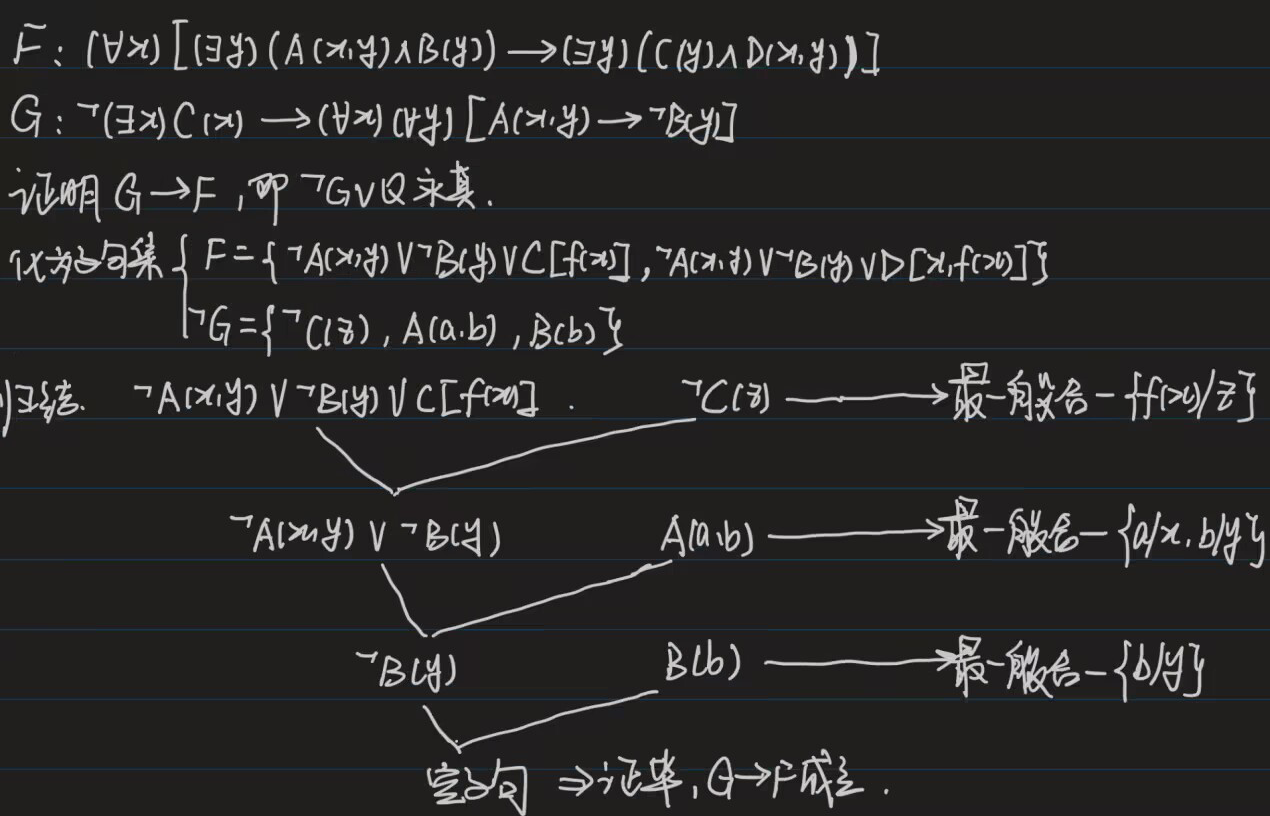 F: (∀x)[(∃y)(A(x,y)∧B(y))→(∃y)(C(y)∧D(x,y))]
G: ¬(∃x)C(x)→(∀x)(∀y)[A(x,y)→¬B(y)]
证明G→F,即¬G∨Q永真.
化为子句集{F={¬A(x,y)∨¬B(y)∨C[f(x)],¬A(x,y)∨¬B(y)∨D[x,f(x)]}
¬G={¬C(z),A(a,b),B(b)}
归结. ¬A(x,y)∨¬B(y)∨C[f(x)]. ¬C(z)→最一般合一{f(x)/z}
¬A(x,y)∨¬B(y) A(a,b)→最一般合一{a/x,b/y}
¬B(y) B(b)→最一般合一{b/y}
空子句⇒证毕,G→F成立.